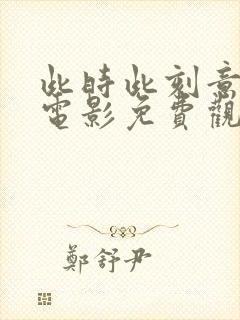 此時此刻意
電影免費觀
鄭舒尹